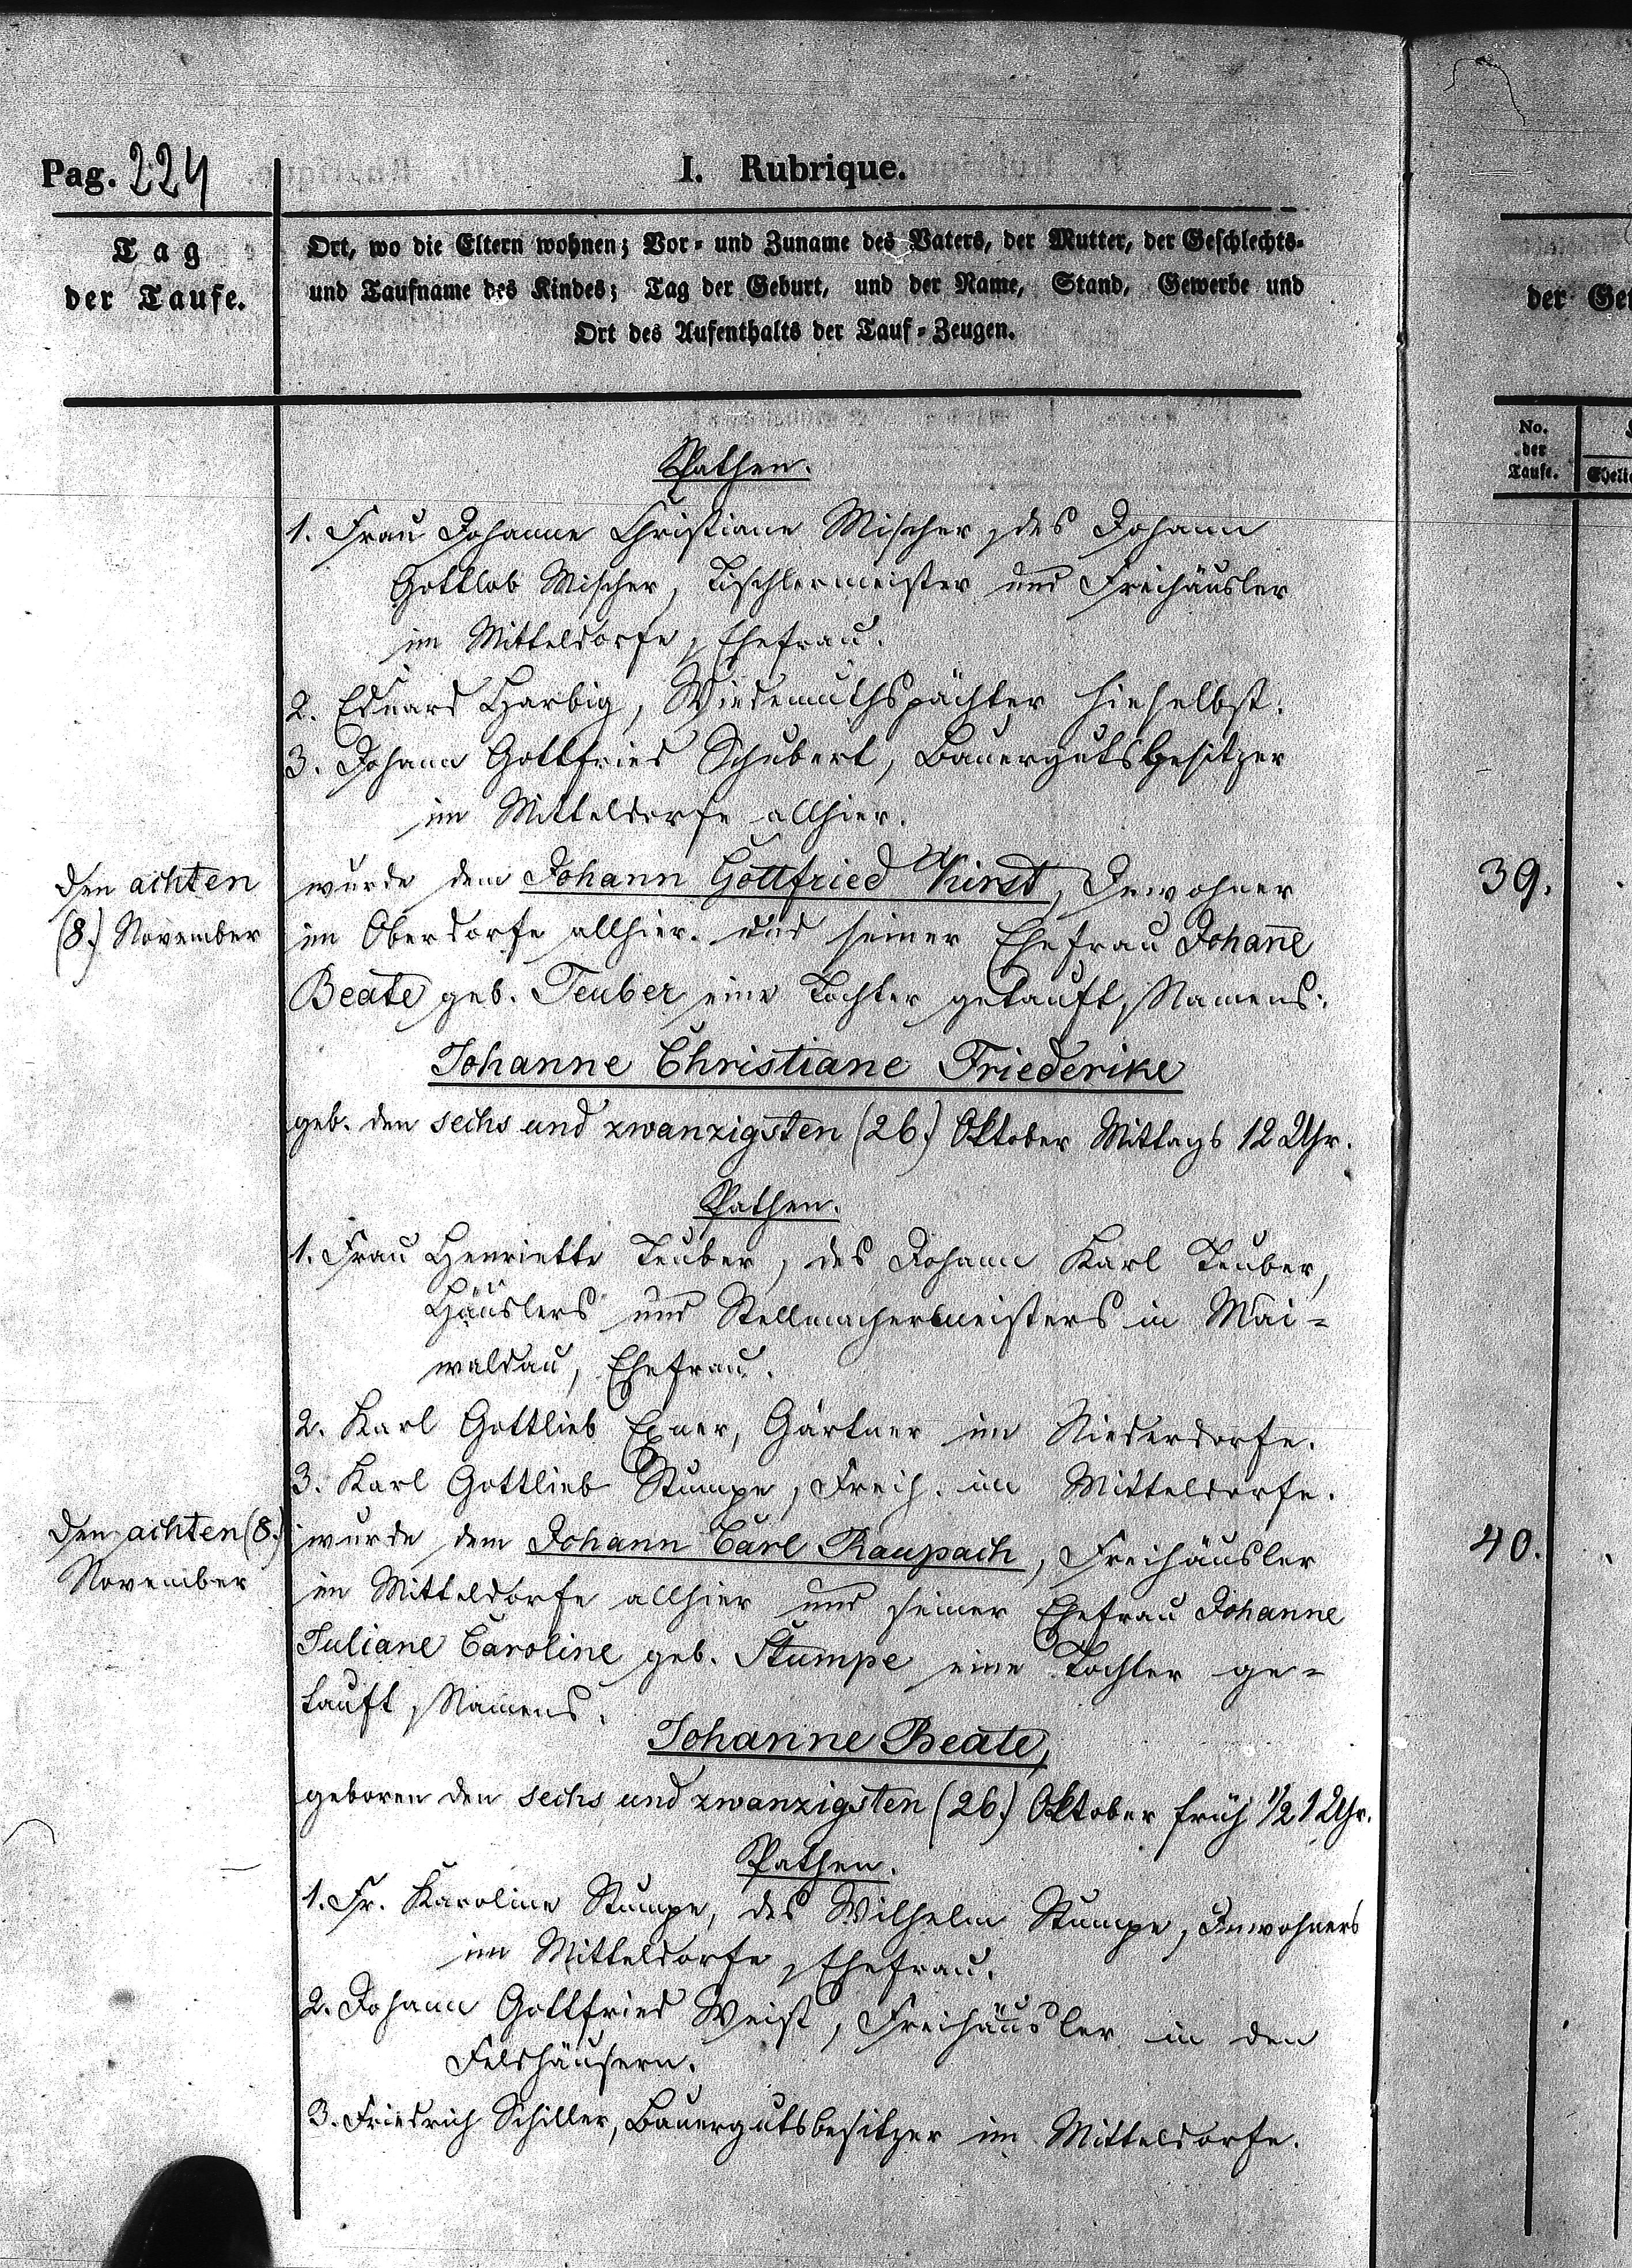 Pag. 224
I. Rubrique.
Tag
der Taufe.
Ort, wo die Eltern wohnen; Vor- und Zuname des Vaters, der Mutter, der Geschlechts-
und Taufname des Kindes; Tag der Geburt, und der Name, Stand, Gewerbe und
Ort des Aufenthalts der Tauf-Zeugen.
der
No.
der
Taufe.
Pathen.
1. Frau Johanne Christiane Mischer, des Johann
Gottlob Mischer, Tischlermeister und Freihäusler
im Mitteldorfe, Ehefrau.
2. Eduard Harbig, Wiedemuthspächter hieselbst.
3. Johann Gottfried Schubert, Bauergutsbesitzer
im Mitteldorfe allhier.
Den achten
(8.) November
wurde dem Johann Gottfried Kirst, Inwohner
39.
im Oberdorfe allhier und seiner Ehefrau Johañe
Beate geb. Teuber eine Tochter getauft, Namens:
Johanne Christiane Friederike
geb. den sechs und zwanzigsten (26.) Oktober Mittags 12 Uhr.
Pathen.
1. Frau Henriette Teuber, des Johann Karl Teuber,
Häuslers und Stellmachermeisters in Mai-
waldau, Ehefrau.
2. Karl Gottlieb Exner, Gärtner im Niederdorfe.
3. Karl Gottlieb Stumpe, Freih. im Mitteldorfe.
Den achten (8.)
November
wurde dem Johann Carl Raupach, Freihäusler
40.
im Mitteldorfe allhier und seiner Ehefrau Johanne
Juliane Caroline geb. Stumpe eine Tochter ge-
tauft, Namens:
Johanne Beate,
geboren den sechs und zwanzigsten (26.) Oktober früh 1/2 1 Uhr.
Pathen.
1. Fr. Karoline Stumpe, des Wilhelm Stumpe, Inwohners
im Mitteldorfe, Ehefrau.
2. Johann Gottfried Weist, Freihäusler in den
Feldhäusern.
3. Friedrich Schiller, Bauergutsbesitzer im Mitteldorfe.